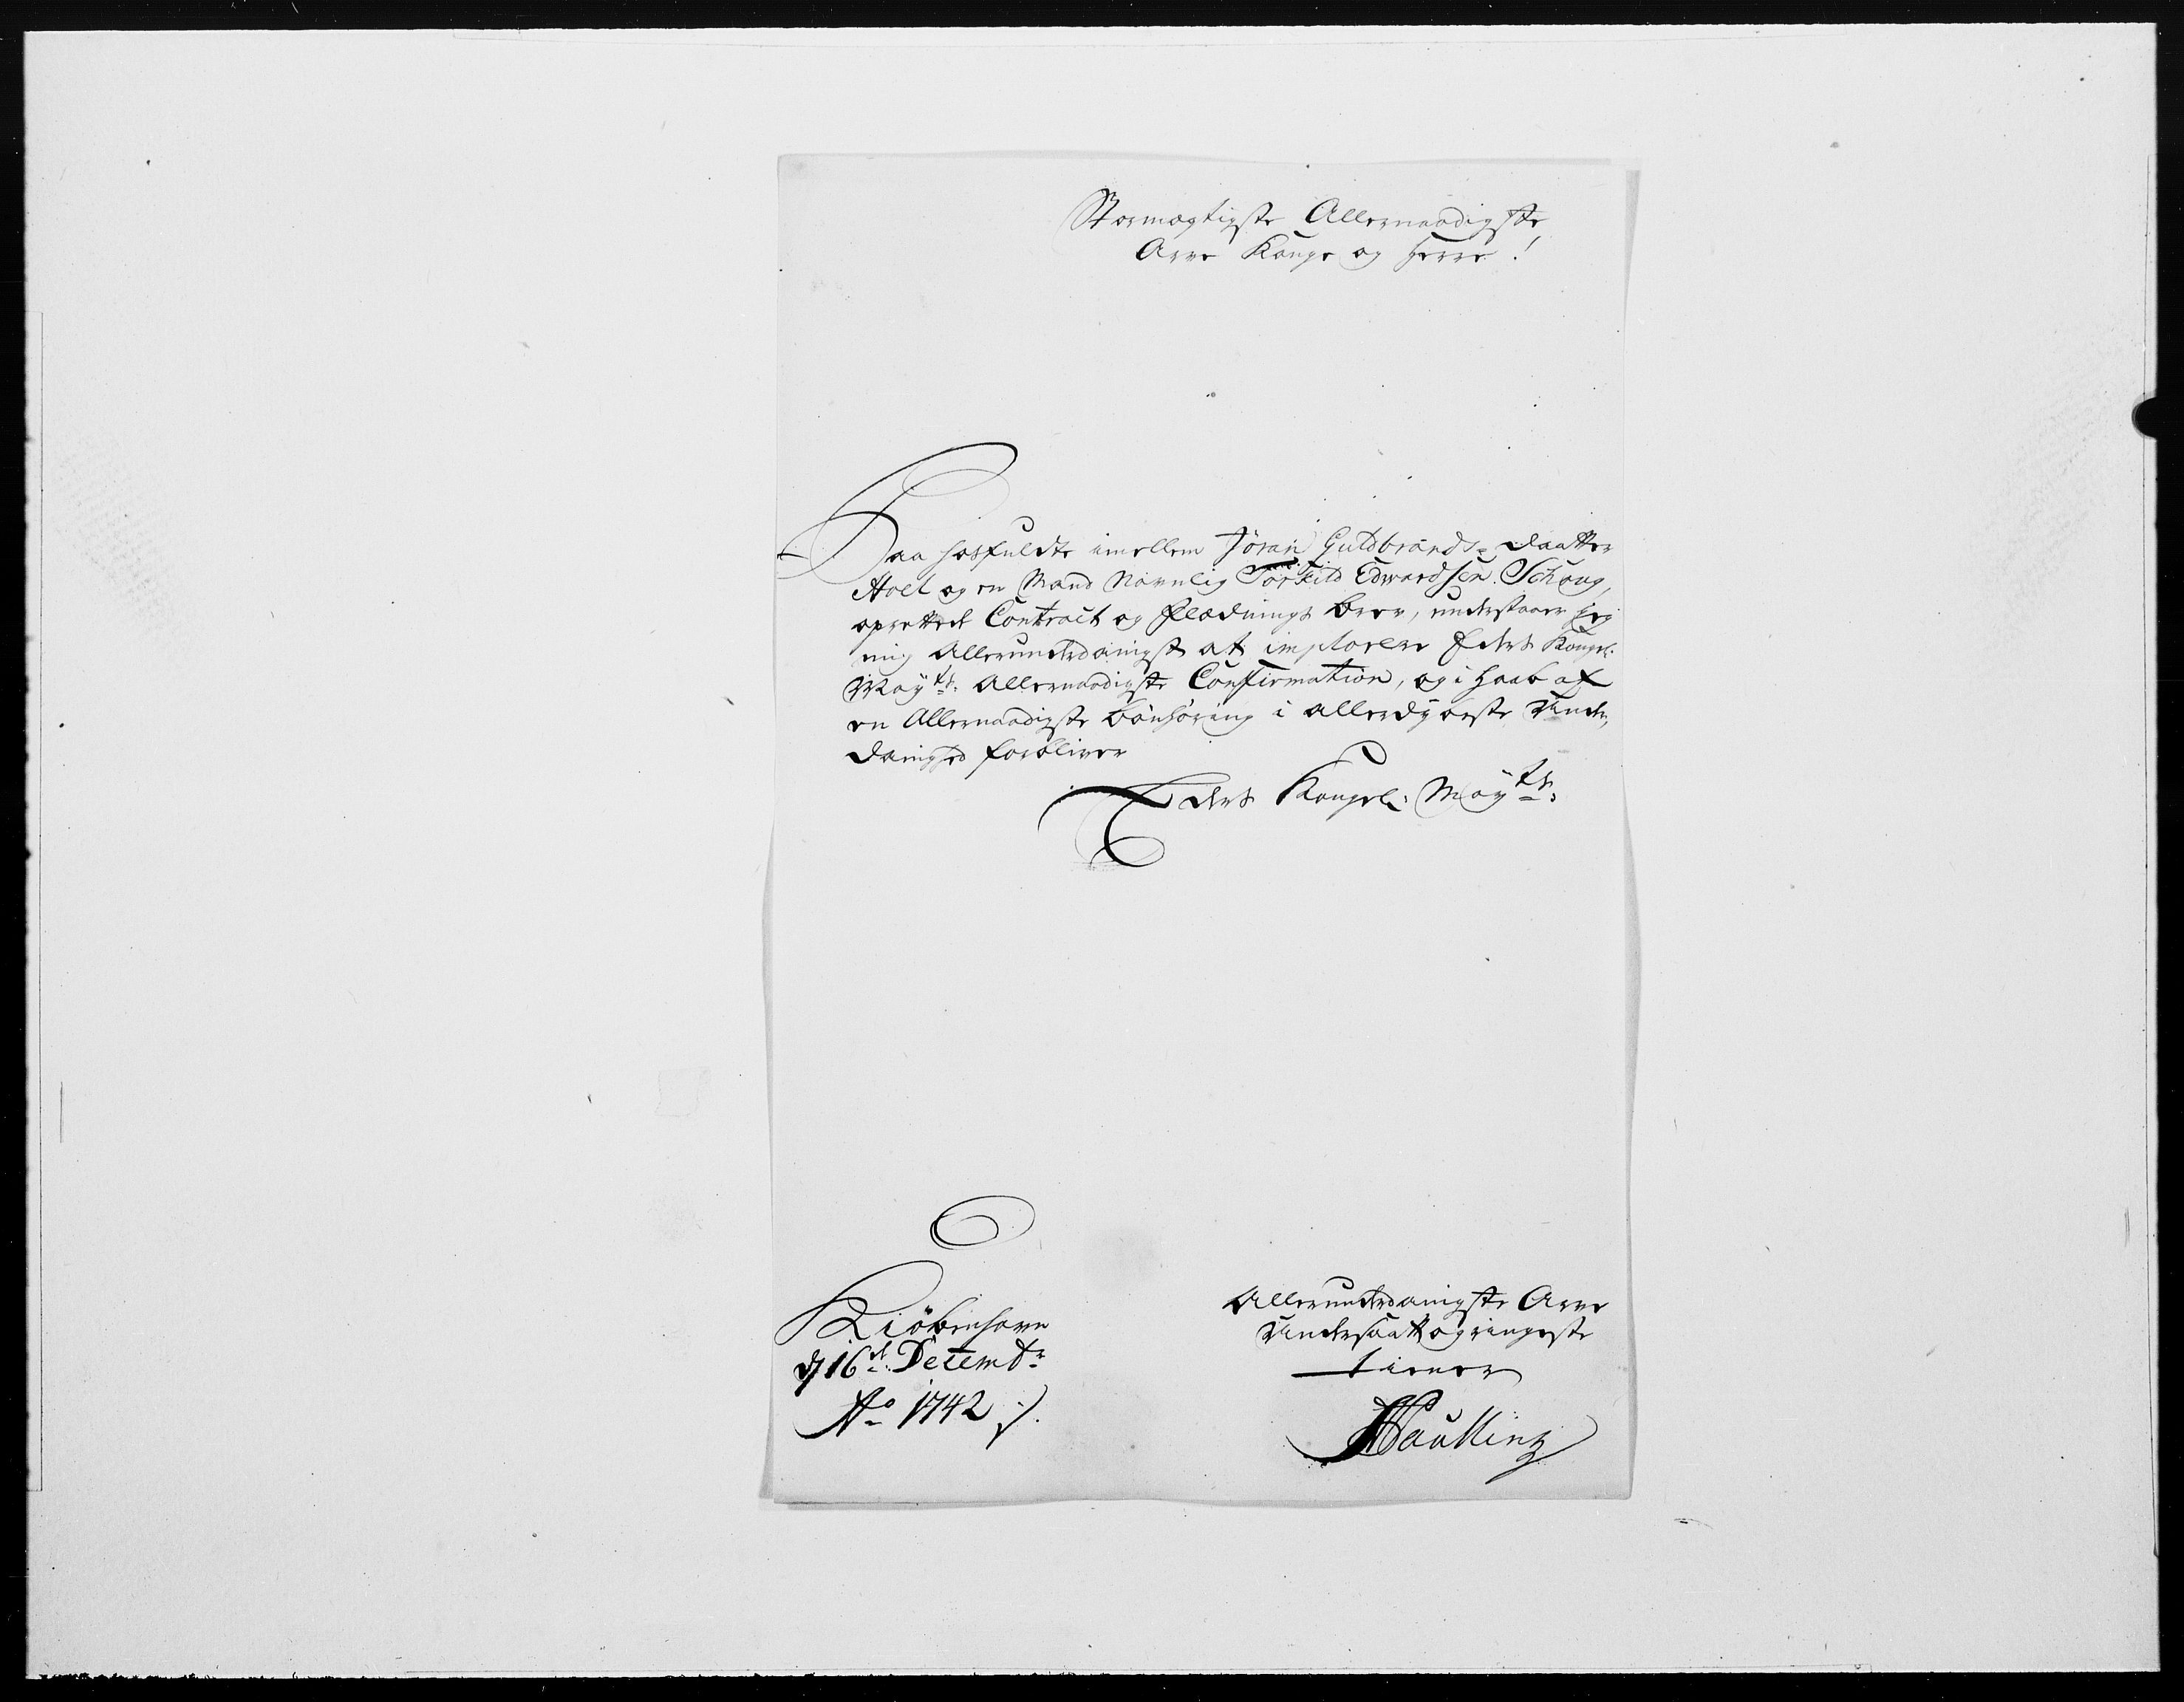 Stormægtigste Allernaadigste
Arve Konge og Herre!
Paa hosfuldte imellem Jöran Guldbrands- Daatter
Holt og en Mand Navnlig Torkild Edwardsen Schoug,
oprettede Contract og Flædnings brev, understaaer jeg
mig Allerunderdanigst at implorere Eders Kongel.
Mayts. Allernaadigste Confirmation, og i Haab af
en Allernaadigste bönhöring i allerdybeste Under,
danighed forbliver
Eders Kongel: Mayts:
Kiöbenhavn
d 16de Decembr
Ao 1742 ./.
Allerunderdanigste Arve
Undersaatt og ringeste
tiener